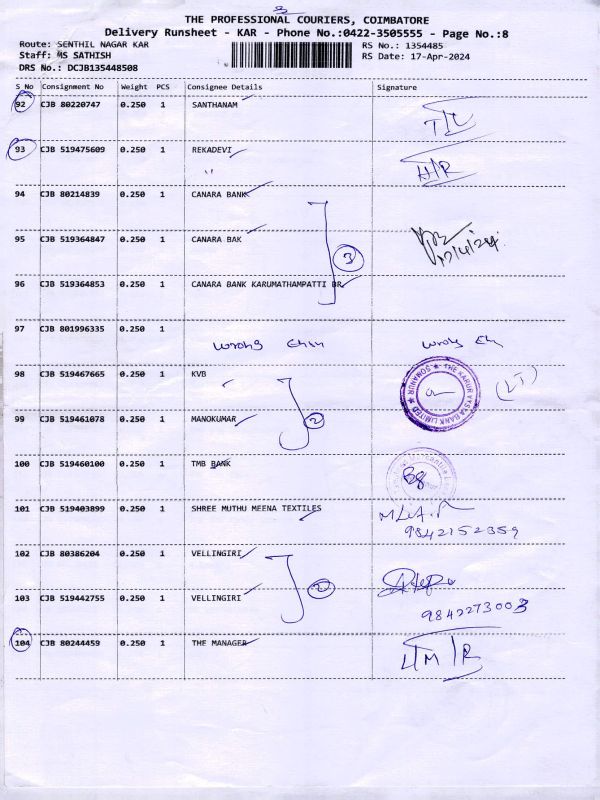 3
THE PROFESSIONAL COURIERS, COIMBATORE
Delivery Runsheet - KAR - Phone No.:0422-3505555 - Page No.:8
Route: SENTHIL NAGAR KAR
RS No.: 1354485
Staff: MS SATHISH
RS Date: 17-Apr-2024
DRS No.: DCJB135448508
S No Consignment No Weight PCS Consignee Details Signature
92 CJB 80220747 0.250 1 SANTHANAM
93 CJB 519475609 0.250 1 REKADEVI H/R
94 CJB 80214839 0.250 1 CANARA BANK
95 CJB 519364847 0.250 1 CANARA BAK
3
96 CJB 519364853 0.250 1 CANARA BANK KARUMATHAMPATTI BR
97 CJB 801996335 0.250 1
wrong
wrong
98 CJB 519467665 0.250 1 KVB
THE KARUR VYSYA BANK LIMITED
SOMANUR
99 CJB 519461078 0.250 1 MANOKUMAR 2
100 CJB 519460100 0.250 1 TMB BANK
101 CJB 519403899 0.250 1 SHREE MUTHU MEENA TEXTILES
9842152359
102 CJB 80386204 0.250 1 VELLINGIRI
2
103 CJB 519442755 0.250 1 VELLINGIRI
9842273003
104 CJB 80244459 0.250 1 THE MANAGER